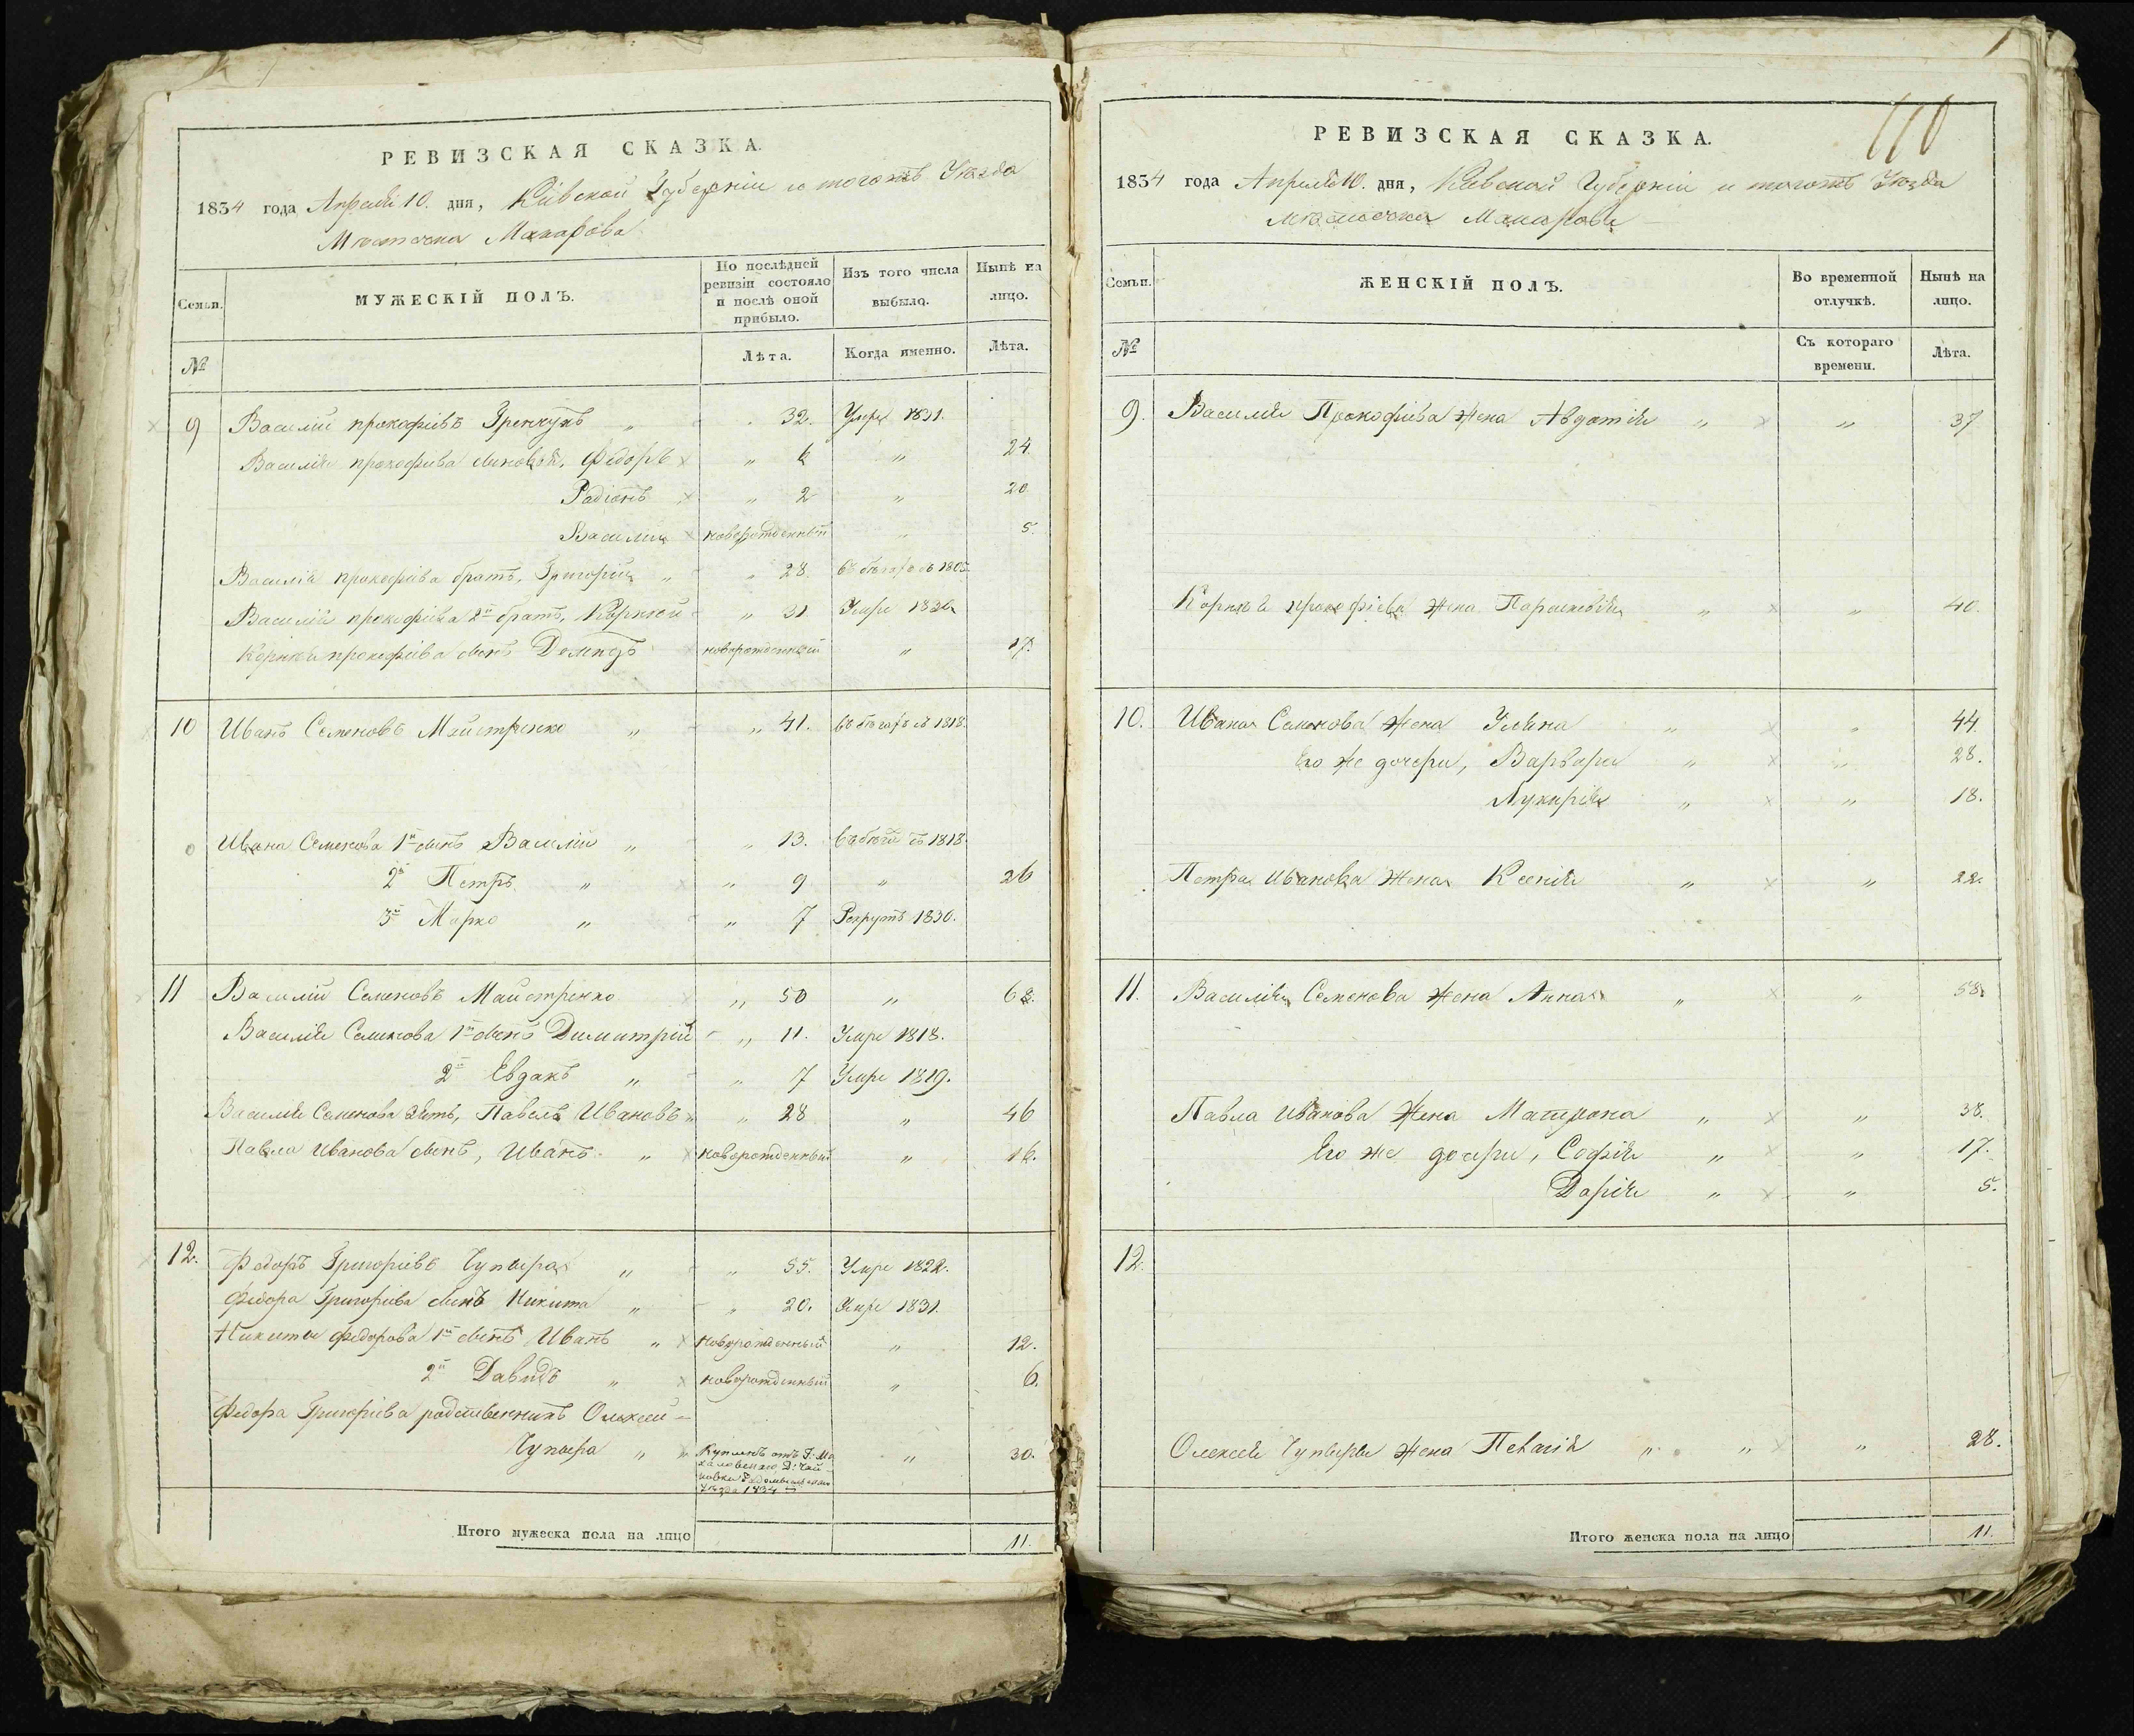 РЕВИЗСКАЯ СКАЗКА.
1834 года Апреля 10. дня, Кіевской Губерніи и тогожъ Уѣзда
Мѣстечка Макарова
Семьи.
МУЖЕСКІЙ ПОЛЪ.
По послѣдней ревизіи состояло и послѣ оной прибыло.
Изъ того числа выбыло.
Нынѣ на лицо.
№
Лѣта.
Когда именно.
Лѣта.
9 Василій прокофіевъ " 32. Умре 1831.
Василія прокофіева сыновья, Федоръ " 6 " 24
Радіонъ " 2 " 20
Василій новорожденный " 5.
Василія прокофіева братъ, Григорій " " 28 въ бѣгахъ съ 1805.
Василія прокофіева 2й братъ, Корнѣй " 31 Умре
Корнѣя прокофіева сынъ Демидъ новорожденный " 17.
10 Иванъ Семеновъ Майстренко " " 41. въ бѣгахъ съ 1818.
Ивана Семенова 1й сынъ Василій " " 13. въ бѣгахъ съ 1818.
2й Петръ " " 9 " 26
3й Марко " " 7 Рекрутъ 1830.
11 Василій Семеновъ Майстренко " 50 " 68.
Василія Семенова 1й сынъ Димитрій " 11. Умре 1818.
2й Евдакъ " " 7 Умре 1819.
Василія Семенова зять, Павелъ Ивановъ " " 28 " 46
Павла Иванова сынъ, Иванъ " новорожденный " 16.
12. Федоръ Григоріевъ Чупыра " " 55. Умре 1822.
Федора Григоріева сынъ Никита " " 20. Умре 1831.
Никиты Федорова 1й сынъ Иванъ " новорожденный " 12.
2й Давидъ " новорожденный " 6.
Федора Григоріева родственникъ Олексѣй
Чупыра " " 30.
Купленъ отъ Г:
уѣзда 1834
Итого мужеска пола на лицо 11.
РЕВИЗСКАЯ СКАЗКА.
110
1834 года Апреля 10. дня, Кіевской Губерніи и тогожъ Уѣзда
мѣстечка Макарова
Семьи.
ЖЕНСКІЙ ПОЛЪ.
Во временной отлучкѣ.
Нынѣ на лицо.
№
Съ котораго времени.
Лѣта.
9. Василія Прокофіева жена Авдотія " " 37
Корнѣя прокофіева жена Параскевія " " 40.
10. Ивана Семенова жена Уляна " " 44.
Его же дочери, Варвара " " 28.
Лукирія " " 18.
Петра Иванова жена Ксенія " " 22.
11. Василія Семенова жена Анна " " 58
Павла Иванова жена Матрона " " 38.
Его же дочери, Софія " " 17.
Дарія " " 5.
12.
Олексѣя Чупыры жена Пелагія " " " 28.
Итого женска пола на лицо 11.